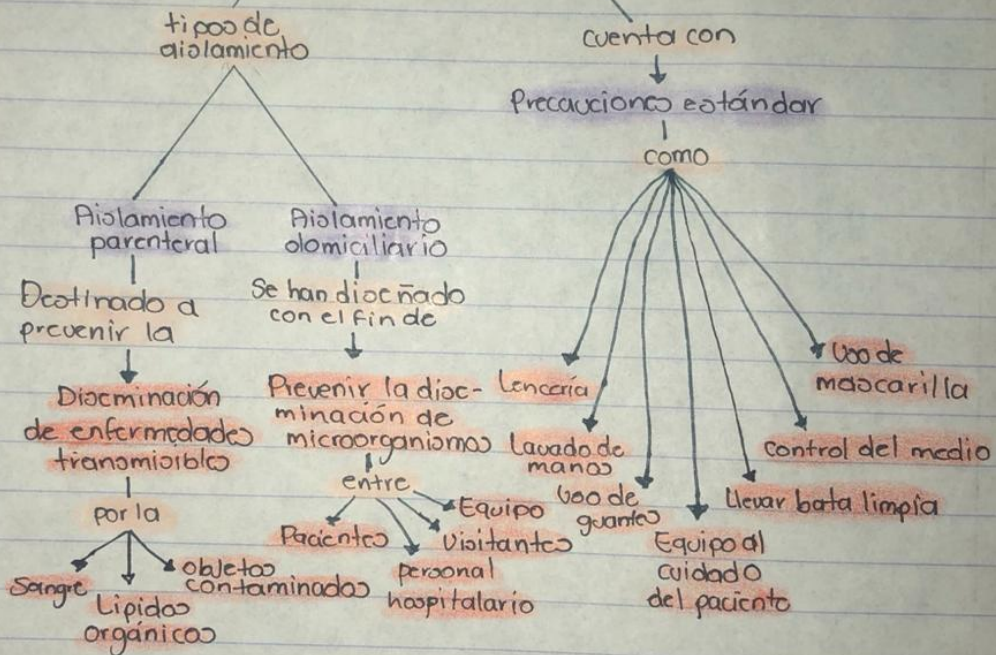 tipos de
aislamiento
Aislamiento
parenteral
Destinado a
prevenir la
Diseminación
de enfermedades
transmisibles
por la
Sangre
Lipidos
orgánicos
objetos
contaminados
Aislamiento
domiciliario
Se han diseñado
con el fin de
Prevenir la dise-
minación de
microorganismos
entre
Pacientes
personal
hospitalario
Visitantes
Equipo
cuenta con
Precauciones estándar
como
Lencería
Lavado de
manos
Uso de
guantes
Equipo al
cuidado
del paciente
Llevar bata limpia
control del medio
Uso de
mascarilla